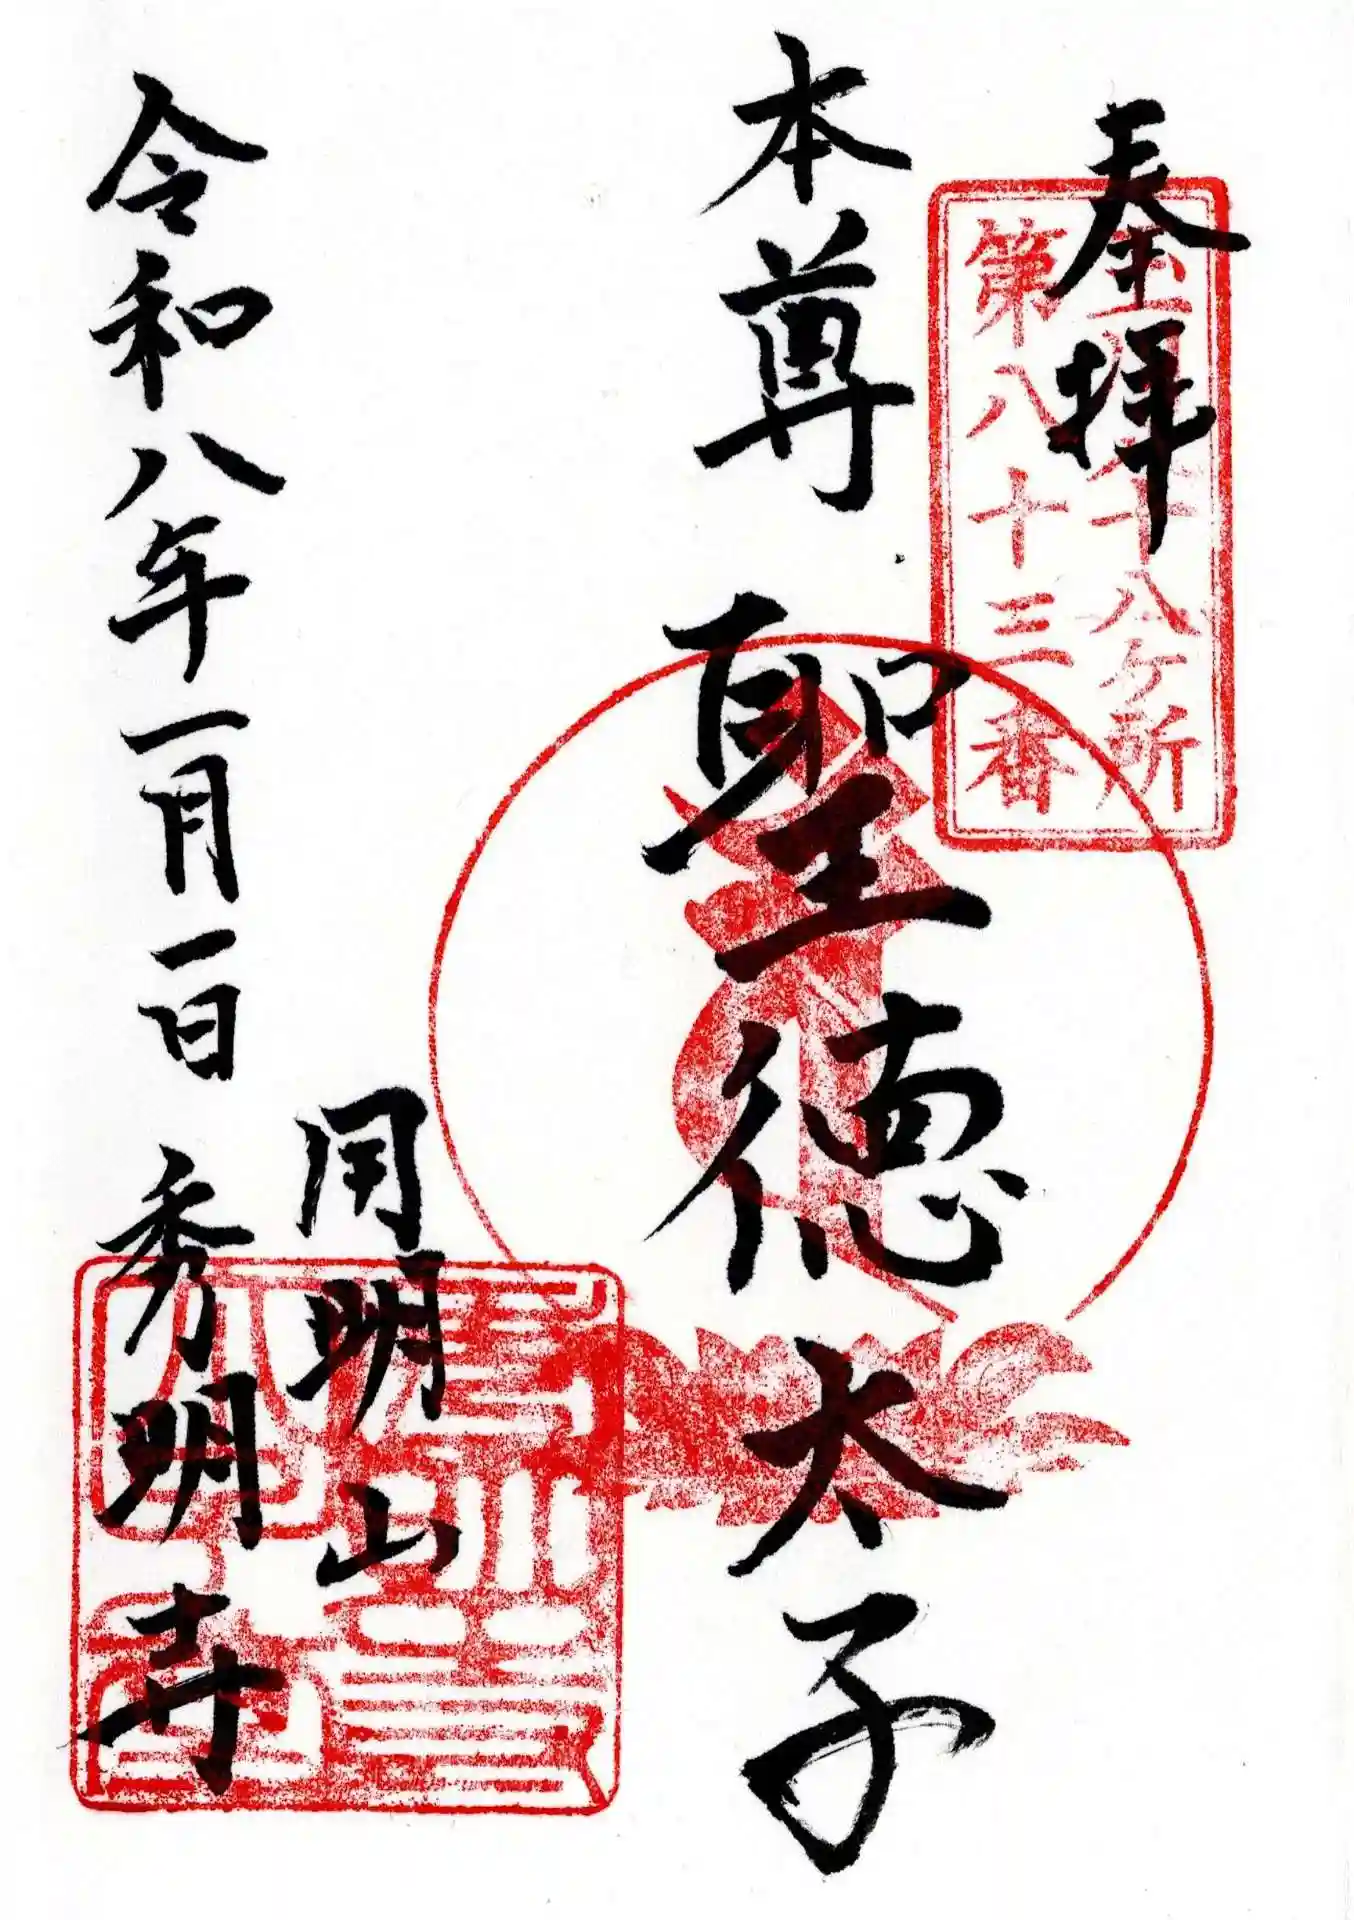 奉拝
玉川八十八ヶ所
第八十三番
本尊 聖徳太子
開明山
令和八年一月一日 秀明寺